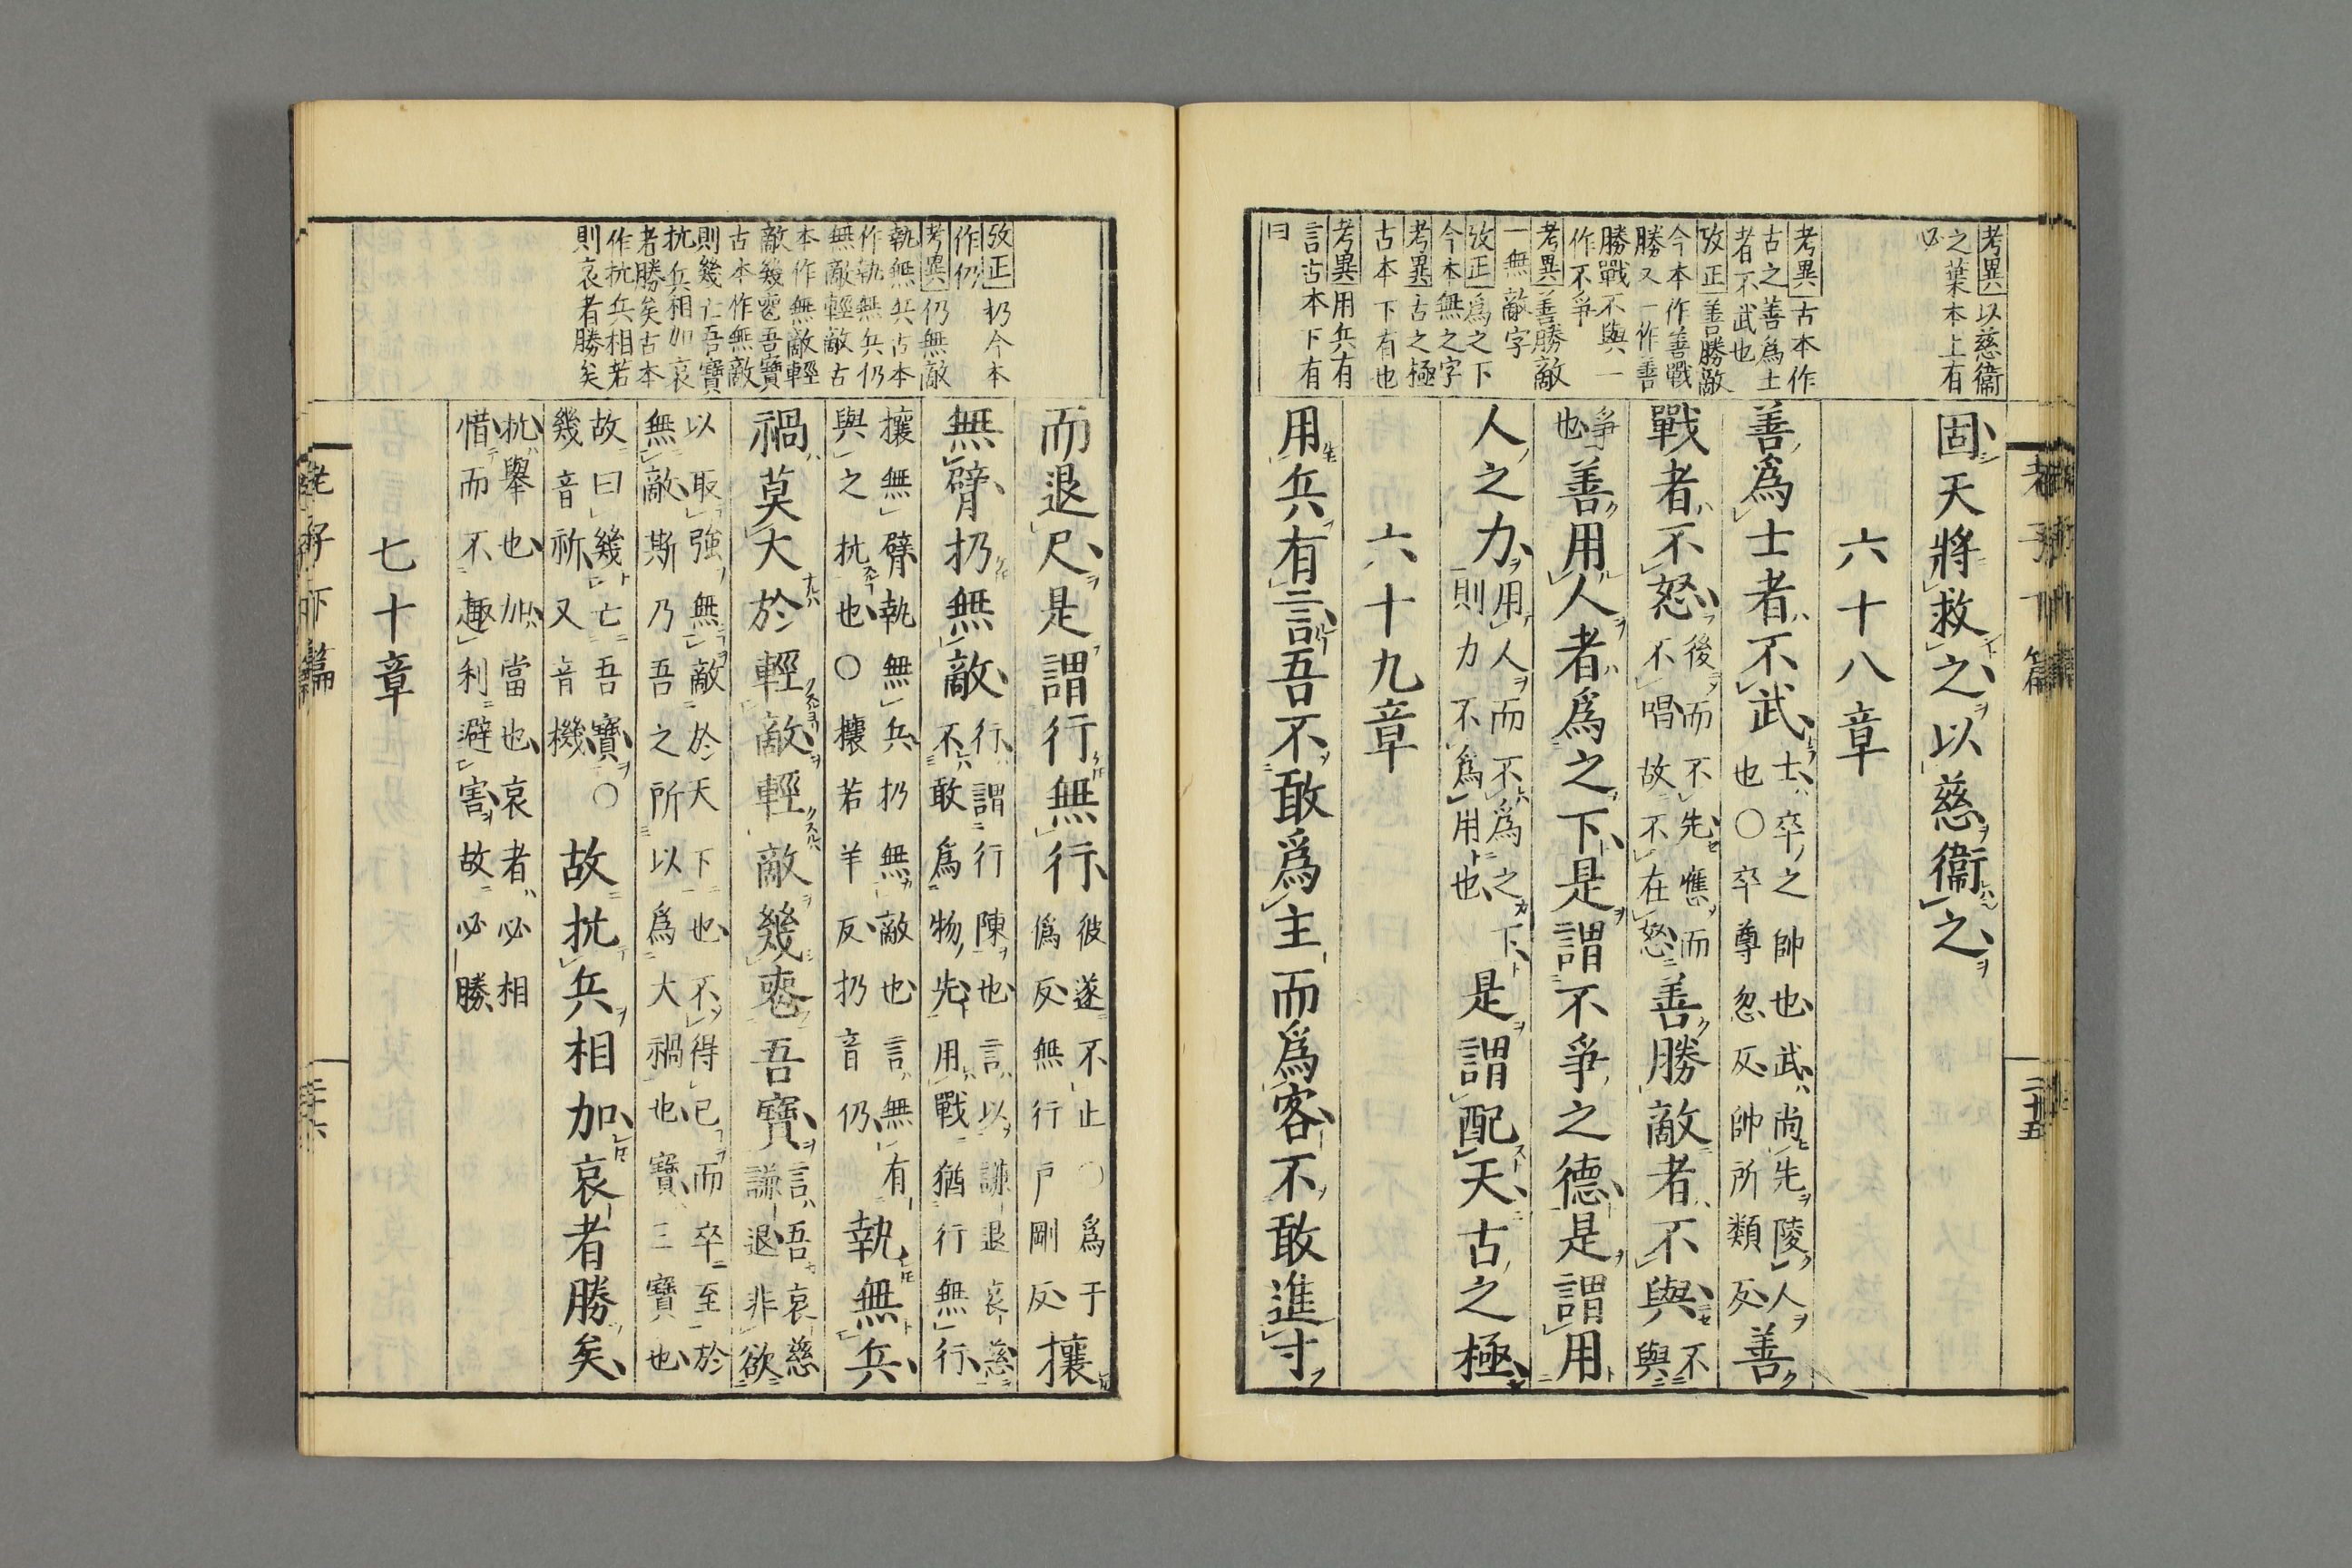 老子下篇
二十五
考異以慈衞
之葉本上有
必
考異古本作
古之善爲士
者不武也
攷正善勝敵
今本作善戰
勝又一作善
勝戰不與一
作不爭
考異善勝敵
一無敵字
攷正爲之下
今本無之字
考異古之極
古本下有也
考異用兵有
言古本下有
曰
固天將救之以慈衞之
六十八章
善爲士者不武士卒之帥也武尚先陵人也○卒尊忽反帥所類反善
戰者不怒後而不先應而不唱故不在怒善勝敵者不與不與
爭也善用人者爲之下是謂不爭之德是謂用
人之力用人而不爲之下則力不爲用也是謂配天古之極
六十九章
用兵有言吾不敢爲主而爲客不敢進寸
攷正扔今本
作仍
考異仍無敵
執無兵古本
作執無兵仍
無敵輕敵古
本作無敵輕
敵幾喪吾寶
古本作無敵
則幾亡吾寶
抗兵相加哀
者勝矣古本
作抗兵相若
則哀者勝矣
而退尺是謂行無行彼遂不止○爲于僞反無行戸剛反攘
無臂扔無敵行謂行陳也言以謙退哀慈不敢爲物先用戰猶行無行
攘無臂執無兵扔無敵也言無有與之抗也○攘若羊反扔音仍執無兵
禍莫大於輕敵輕敵幾喪吾寶言吾哀慈謙退非欲
以取強無敵於天下也不得已而卒至於無敵斯乃吾之所以爲大禍也寶三寶也
故曰幾亡吾寶○幾音祈又音機故抗兵相加哀者勝矣
抗舉也加當也哀者必相惜而不趣利避害故必勝
七十章
老子下篇
二十六